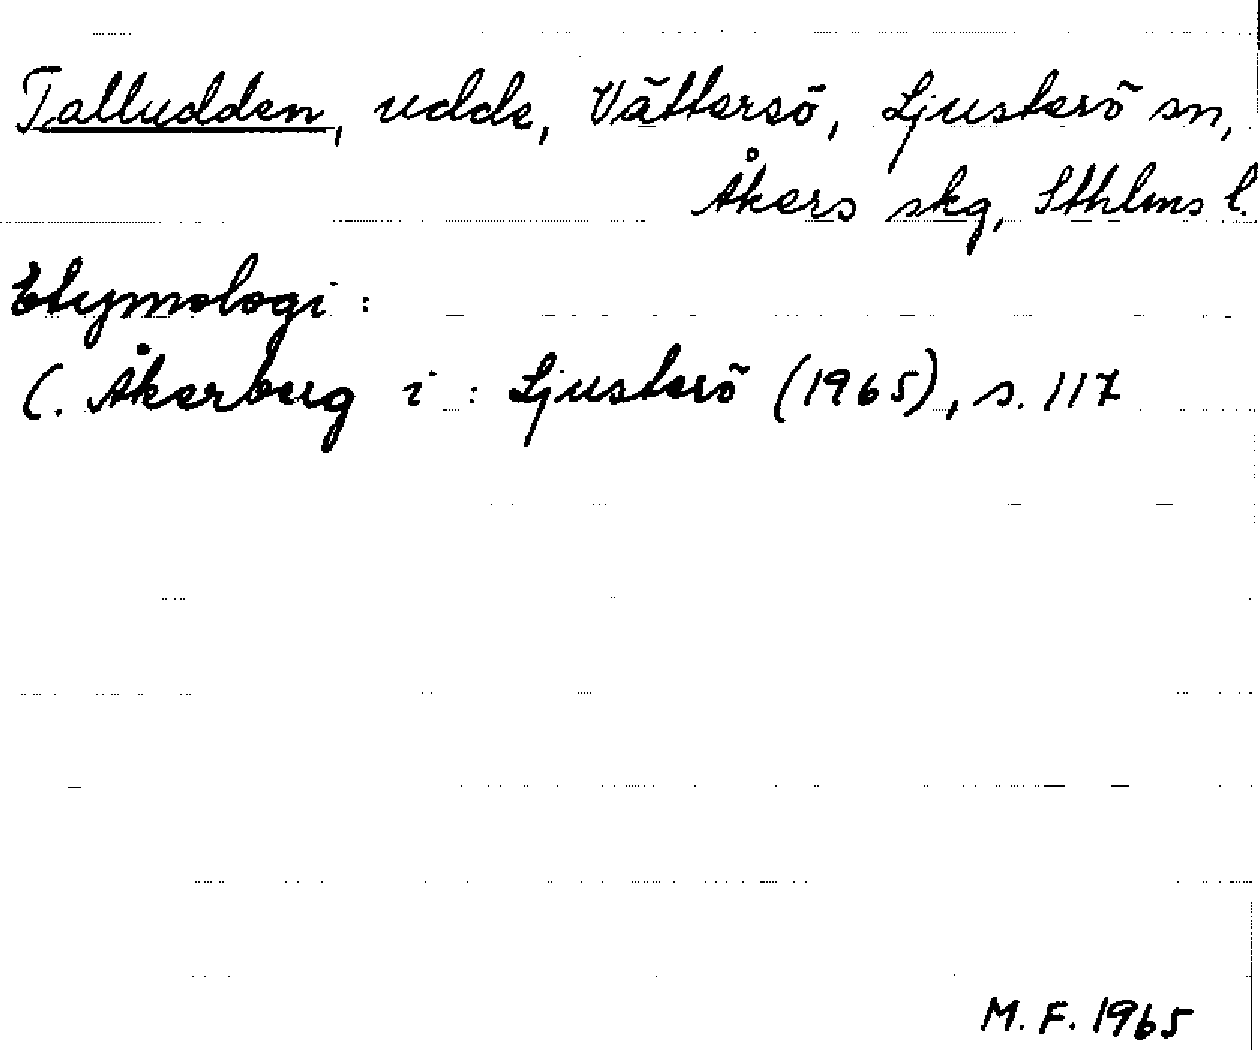 Talludden, udde, Vättersö, Ljusterö sn,
Åkers skg, Sthlms l.
Etymologi:
C. Åkerberg i: Ljusterö (1965), s. 117
M. F. 1965